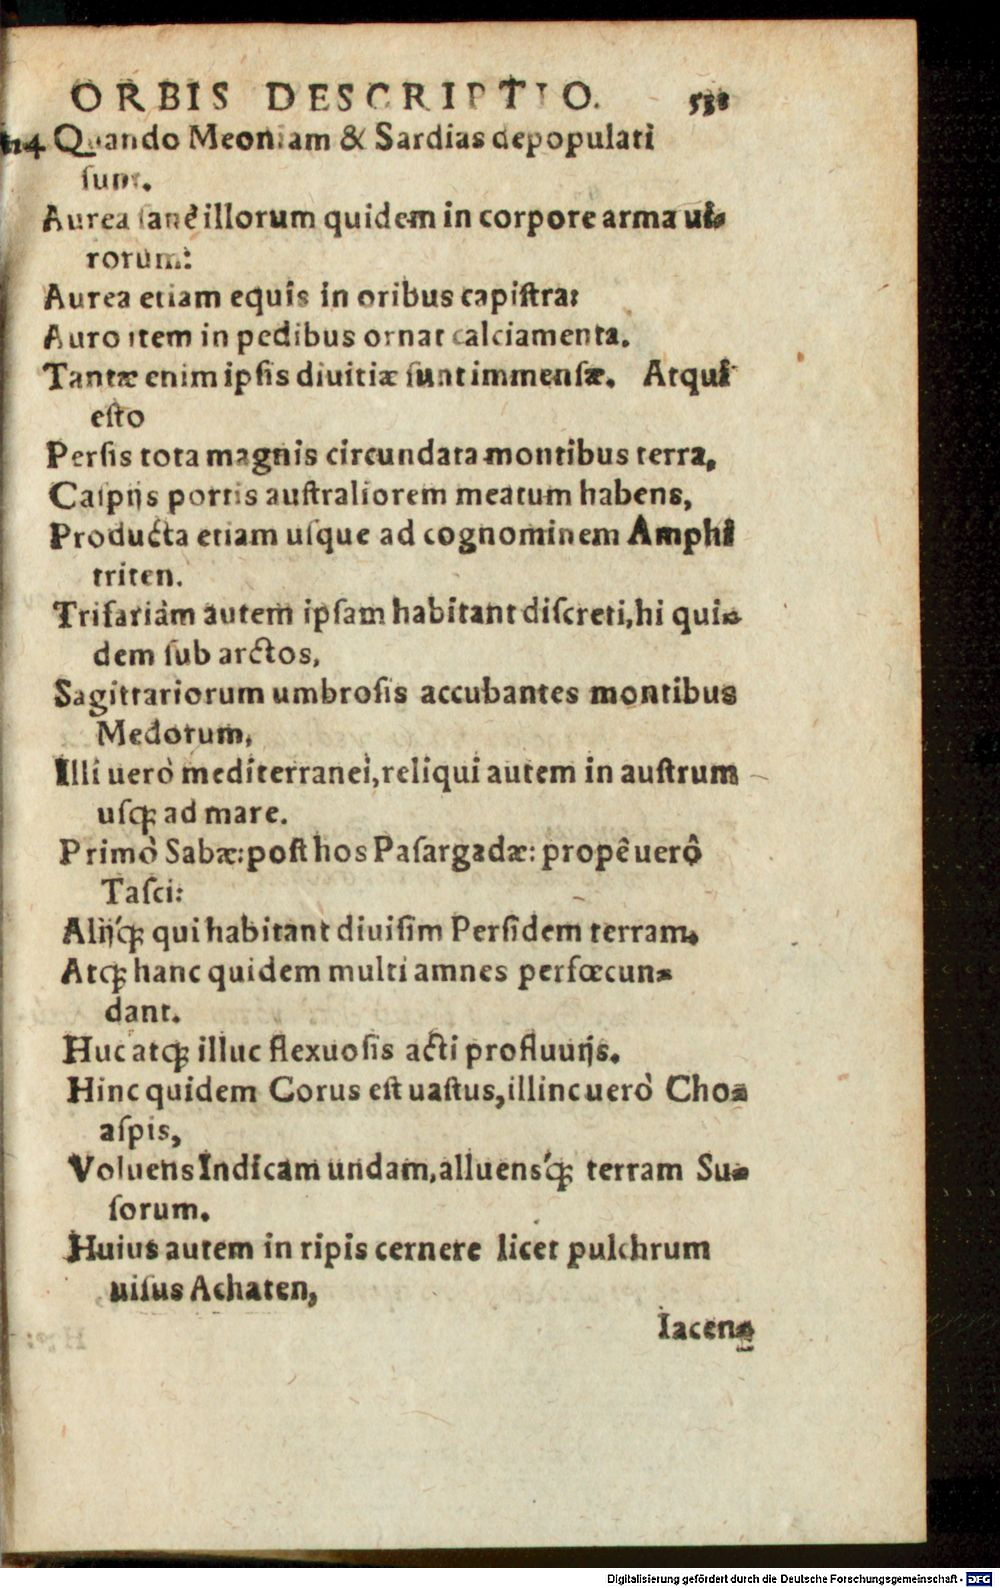 ORBIS DESCRIPTIO. 538
Quando Meoniam & Sardias depopulati
ſunt.
Aurea ſanè illorum quidem in corpore arma ui-
rorum:
Aurea etiam equis in oribus capiſtra:
Auro item in pedibus ornat calciamenta.
Tantæ enim ipſis diuitiæ ſunt immenſæ. Atqui
eſto
Perſis tota magnis circundata montibus terra,
Caſpijs portis auſtraliorem meatum habens,
Producta etiam uſque ad cognominem Amphi
triten.
Trifariàm autem ipſam habitant diſcreti, hi qui-
dem ſub arctos,
Sagittariorum umbroſis accubantes montibus
Medorum,
Illi uerò mediterranei, reliqui autem in auſtrum
uſcꝫ ad mare.
Primò Sabæ: poſt hos Paſargadæ: propê uerô
Taſci:
Alijſ́cꝫ qui habitant diuiſim Perſidem terram.
Atcꝫ hanc quidem multi amnes perfœcun-
dant.
Huc atcꝫ illuc flexuoſis acti profluuijs.
Hinc quidem Corus eſt uaſtus, illinc uerò Cho-
aſpis,
Voluens Indicam undam, alluenſ́cꝫ terram Su-
ſorum.
Huius autem in ripis cernere licet pulchrum
uiſus Achaten,
Iacen-
Digitalisierung gefördert durch die Deutsche Forschungsgemeinschaft - DFG